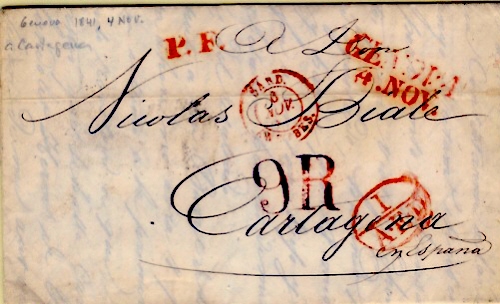 Genova 1841, 4 Nov.
a Cartagena
P.F.
GENOVA
4. NOV.
A Don
Nicolas Biale
SARD.
8
NOV.
9R
Cartagena
en España